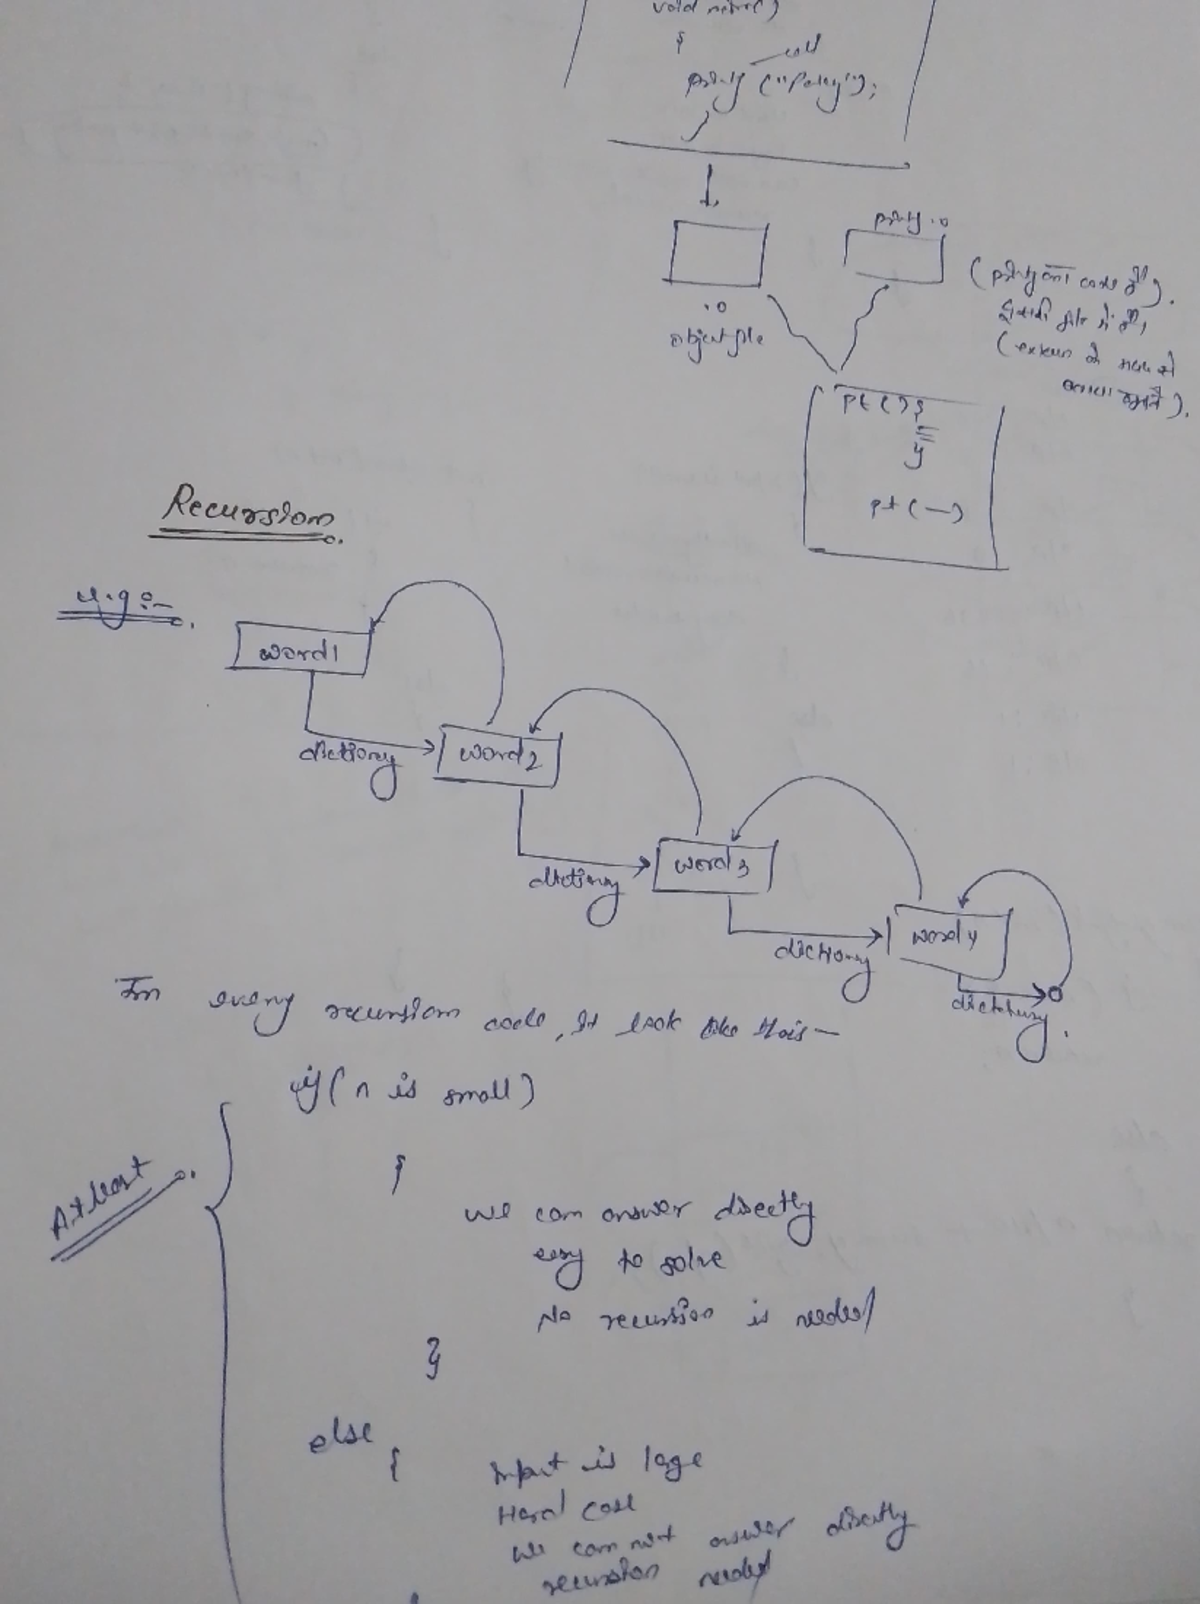 {
call
printf ("
printf.o
.o
object file
(printf का code है).
इसकी file में है,
(extern के
pt()}
pt(—)
Recursion
e.g:-
word1
dictionary
word2
dictionary
word3
dictionary
word4
dictionary
In every recursion code, it look like this—
if(n is small)
Atleast
{
we can answer directly
easy to solve
No recursion is needed
}
else
{
Input is large
Hard case
we can not answer directly
recursion needed